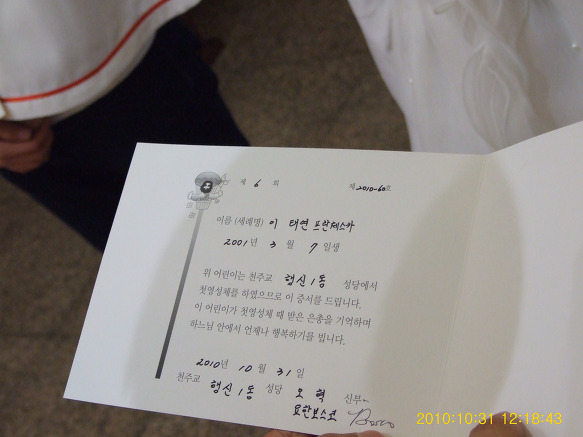 제 6 회 제 2010-60호
이름 (세례명) 이 태연 프란체스카
2001년 3 월 7 일생
위 어린이는 천주교 행신1동 성당에서
첫영성체를 하였으므로 이 증서를 드립니다.
이 어린이가 첫영성체 때 받은 은총을 기억하며
하느님 안에서 언제나 행복하기를 빕니다.
2010년 10 월 31 일
천주교 행신1동 성당 오 혁 신부
요한보스코 Bosco
2010:10:31 12:18:43